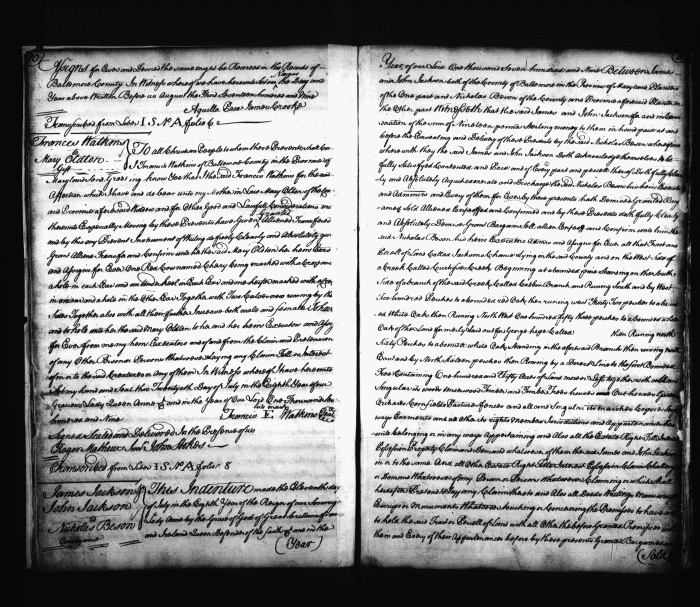 Assigns for Ever and Devised the same ought be Recorded in the Records of
Baltemore County In Witness whereof we have hereunto the Day and
Year above Written Before us August the Third Seventeen hundred and Nine
Aquilla Paca James Crooke
Transcribed from Liber I S No A folio
Frances Watkins
To
Mary Olden
Gift
To all Christian People to whom these Presents shall Come
I Francis Watkins of Baltemore County in the Province of
Maryland Send Greeting know Yee that I the said Francis Watkins for the
Affection which I have and do bear unto my Mother in Law Mary Olden of the
and Province aforesaid Widow and for other Good and Lawfull Considerations me
thereunto Especially Moving by these Presents have Given Granted Aliened Transferred
and by this my Present Instrument of Writing do freely Clearly and Absolutely
Grant Aliene Transfer and Confirm unto the said Mary Olden her heirs
and Assigns for Ever One Red Cow named Cherry being marked with a
a hole in each Ear and an under keel in Each Ear and one heifer marked with
and a hole in the Other Ear Together with Two Calves now running by the
Sides Together also with all their further Increase both male and female To have
and to hold unto her the said Mary Olden to her and her heirs Executors and
for Ever from me my heirs Executors and from the Claim and Pretension
of any Other Person or Persons Whatsoever laying any Claim Title or Interest
of in or to the said Creatures or any of them In Witness whereof I have hereunto
Set my hand and Seal this Twentyeth Day of July in the Eighth Year of our
Gracious Lady Queen Anne &c and in the Year of our Lord One Thousand Seven
hundred and Nine
his mark
Francis F Watkins
Signed Sealed and Delivered In the Presence of us
Roger Mathews John Stokes
Transcribed from Liber I S No A folio 8
James Jackson &
John Jackson
To
Nicholas Beson
Conveyance
This Indenture made the Eleventh day
of July in the Eighth Year of the Reign of our Sovereign
Lady Anne by the Grace of God of Great Brittain
and Ireland Queen Defender of the Faith &c and in the
(Year)
Year of our Lord One thousand Seven hundred and Nine Between James
and John Jackson both of the County of Baltemore in the Province of Maryland Planters
of the One part and Nicholas Beson of the County and Province aforesaid Planter of
the Other part Witnesseth that the said James and John Jackson for and in
of the sum of Nineteen pounds Sterling money to them in hand paid at and
before the Ensealing and Delivery of these Presents by the said Nicholas Beson
wherewith they the said James and John Jackson Doth acknowledge themselves to be
fully Satisfyed Contented and Paid and of Every part and parcell thereof Doth fully
and Absolutely Acquit Exonerate and Discharge the said Nicholas Beson his heirs
and Adminrs and Every of them for Ever by these presents hath Demised Granted
Sold Aliened Enfeoffed and Confirmed and by these Presents doth fully Clearly
and Absolutely Demise Grant Bargain Sell alien Enfeoff and Confirm unto him the
said Nicholas Beson his heirs Executors Admrs and Assigns for Ever all that Tract or
Parcell of Land Called Jacksons Chance lying in the said County and on the West side of
a Creek Called Beginning at a bounded pine standing on the South
Side of a branch of the said Creek Called Cabbin Branch and Running South and by West
Six hundred Perches to a bounded red Oak then running West Thirty Two perches to a
White Oak then Running North West One hundred fifty three perches to a bounded
Oak of the Land formerly Laid out for George hope Called then Running North
Sixty Perches to a bounded white Oak standing in the aforesaid Branch then running
East and by North sixteen perches then Running by a Direct Line to the first Bounded
Tree Containing One hundred and Fifty Acres of Land more or Less together with all and
Singular its woods Underwoods Timber and Timber Trees houses Out houses
Orchards Cornfields Pastures Fences and all and Singular its
ways Easments and all other its rights Members Jurisdictions and Appurtenances
unto belonging or in any ways Appertaining and Also all the Estate Right Title
Possession Property Claim and Demand whatsoever of them the said James and John Jackson
in or to the same And all Other Estate Right Title Interest Possession Claim
or Demand Whatsoever of any Person or Persons Whatsoever Claiming or which shall
hereafter Pretend to lay any Claim thereto and Also all Deeds Writings
Whatsoever Touching or Concerning the Premises To have and
to hold the said Tract or Parcell of Land with all Other the before Granted Premises
them and Every of their Appurtenances before by these presents Granted Bargained
(Sold